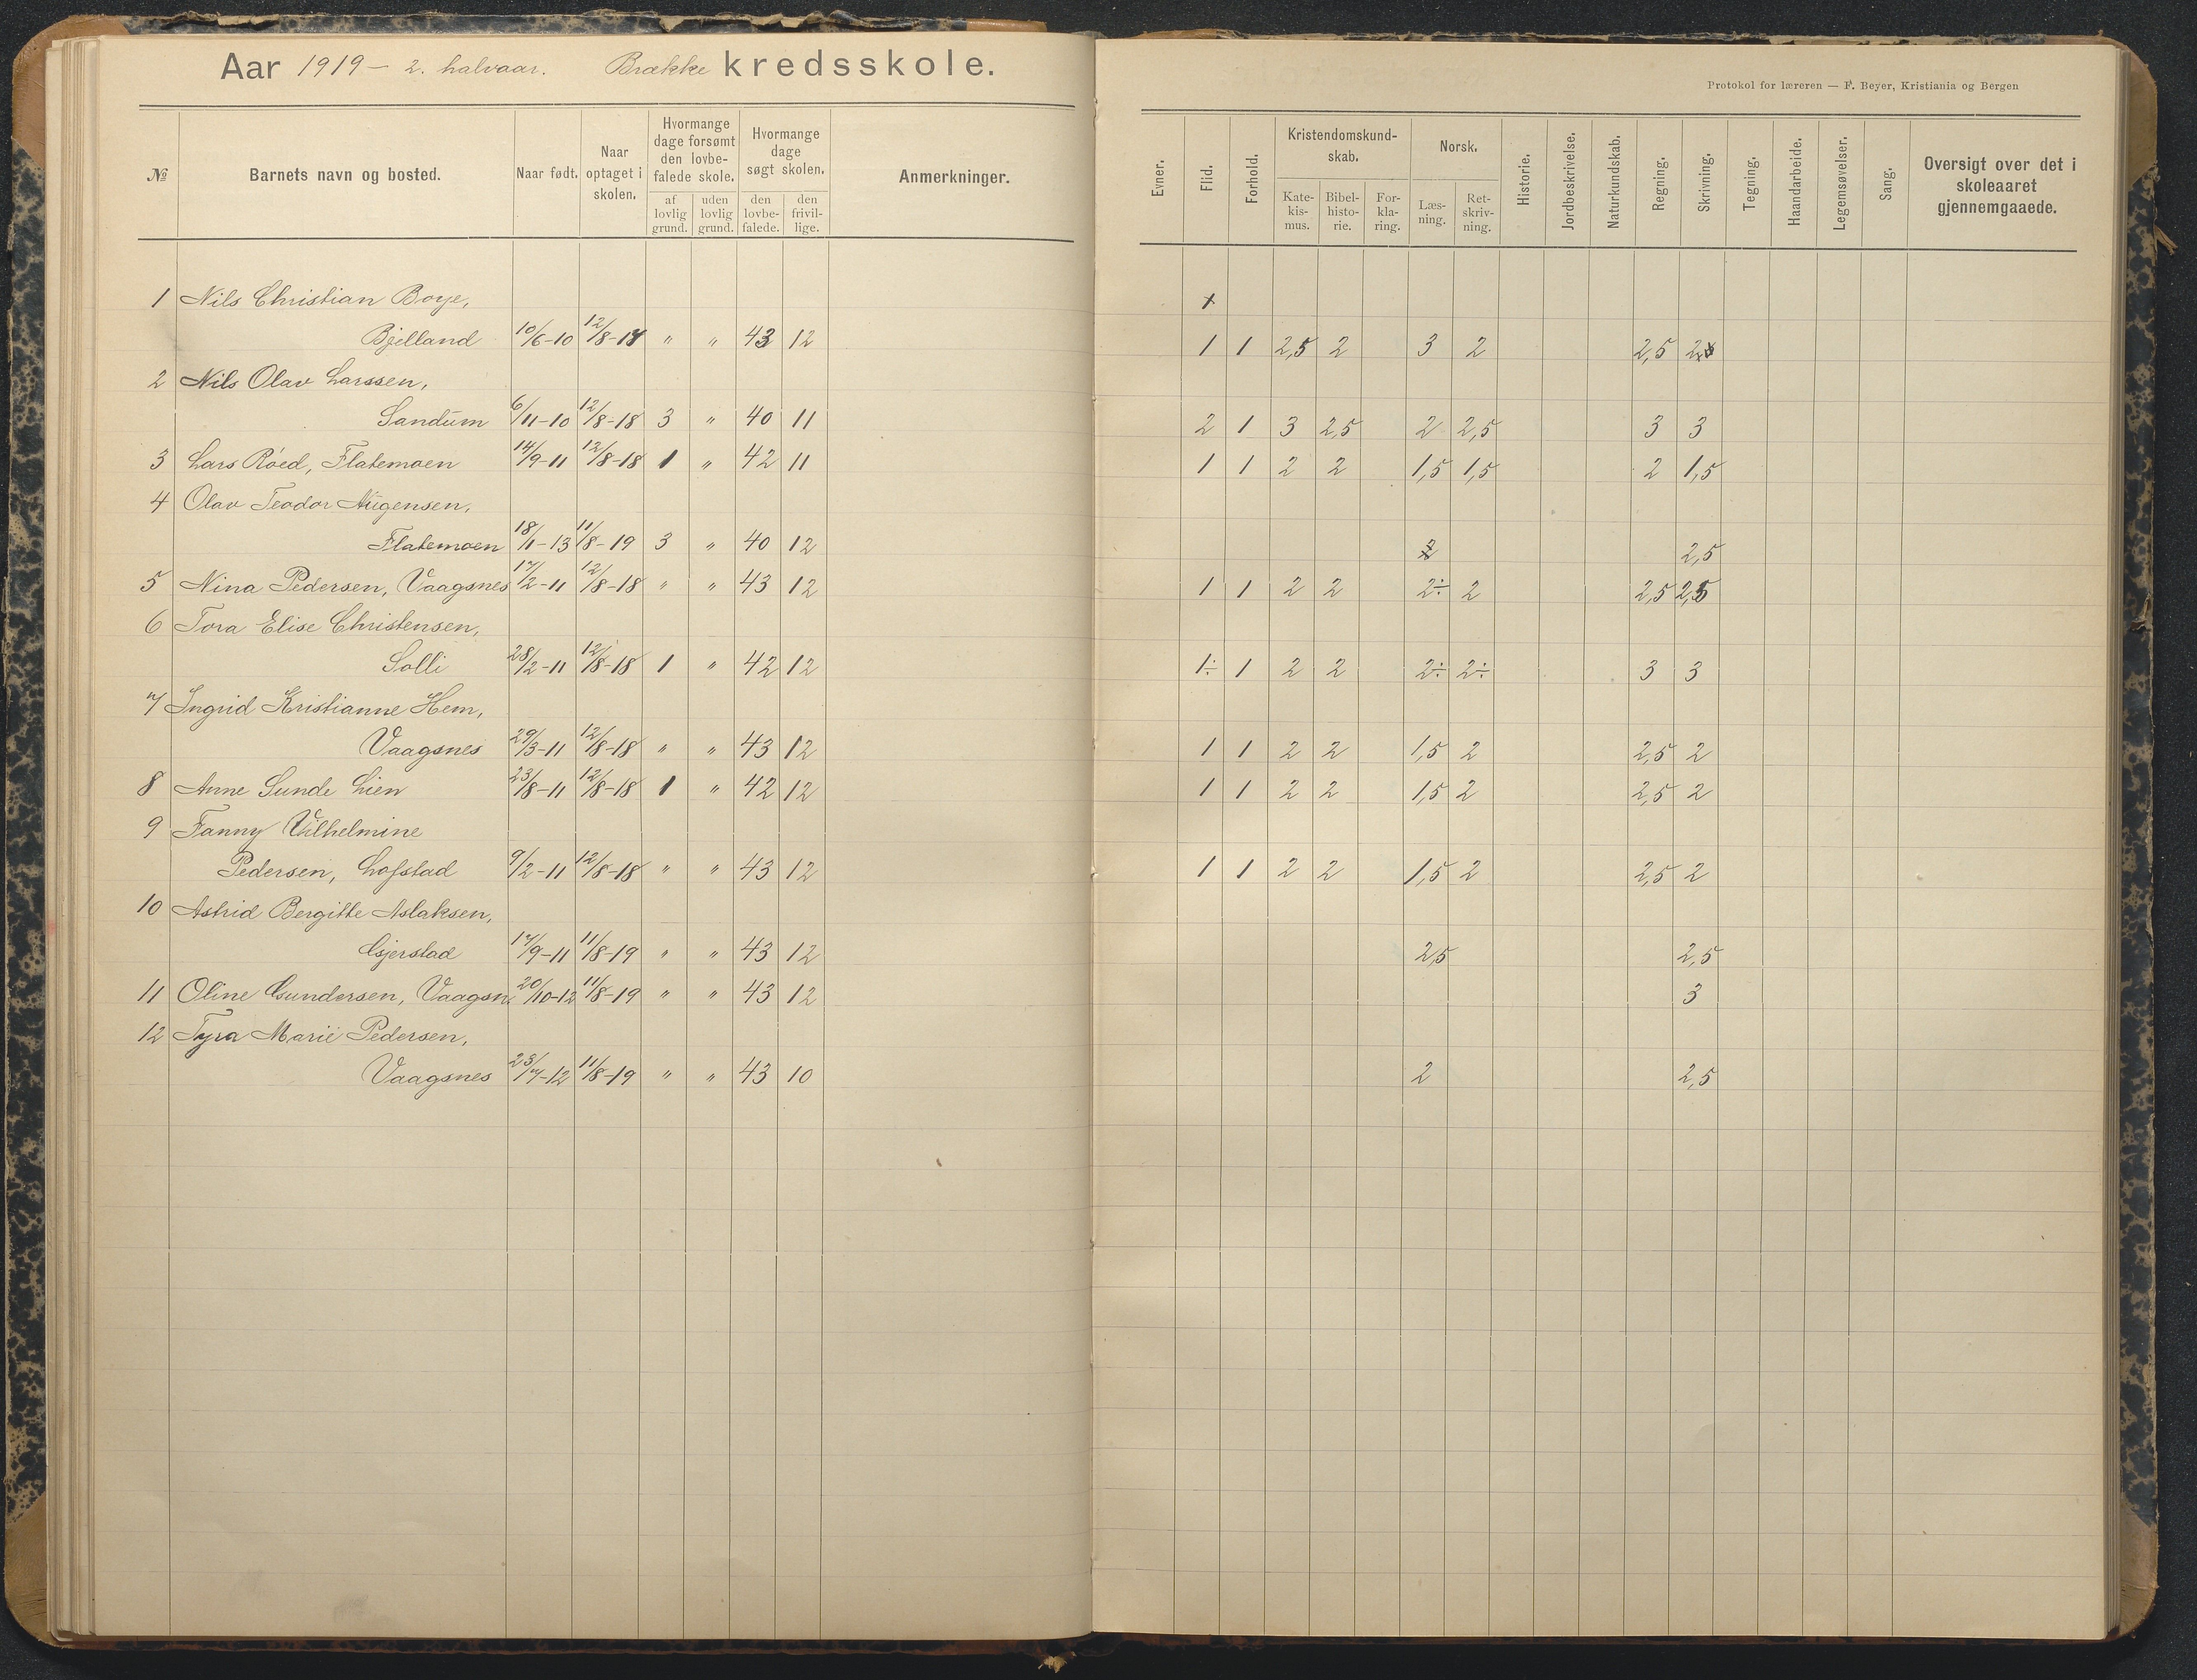 Aar 1919 - 2. halvaar. Brække kredsskole.
Protokol for læreren — F. Beyer, Kristiania og Bergen
№ Barnets navn og bosted. Naar født. Naar optaget i skolen. Hvormange dage forsømt den lovbefalede skole. af lovlig grund. uden lovlig grund. Hvormange dage søgt skolen. den lovbefalede. den frivillige. Anmerkninger. Evner. Flid. Forhold. Kristendomskundskab. Katekismus. Bibelhistorie. Forklaring. Norsk. Læsning. Retskrivning. Historie. Jordbeskrivelse. Naturkundskab. Regning. Skrivning. Tegning. Haandarbeide. Legemsøvelser. Sang. Oversigt over det i skoleaaret gjennemgaaede.
1 Nils Christian Boye,
Bjelland 10/6-10 12/8-17 " " 43 12 1 1 2,5 2 3 2 2,5 2
2 Nils Olav Larssen,
Sandum 6/11-10 12/8-18 3 " 40 11 2 1 3 2,5 2 2,5 3 3
3 Lars Röed, Flatemoen 14/9-11 12/8-18 1 " 42 11 1 1 2 2 1,5 1,5 2 1,5
4 Olav Teodor Augensen,
Flatemoen 18/11-13 11/8-19 3 " 40 12 2,5
5 Nina Pedersen, Vaagsnes 17/2-11 12/8-18 " " 43 12 1 1 2 2 2÷ 2 2,5 2,5
6 Tora Elise Christensen,
Solli 28/2-11 12/8-18 1 " 42 12 1÷ 1 2 2 2÷ 2÷ 3 3
7 Ingrid Kristianne Hem,
Vaagsnes 29/3-11 12/8-18 " " 43 12 1 1 2 2 1,5 2 2,5 2
8 Anne Sunde Lien 23/8-11 12/8-18 1 " 42 12 1 1 2 2 1,5 2 2,5 2
9 Fanny Vilhelmine
Pedersen, Lofstad 9/2-11 12/8-18 " " 43 12 1 1 2 2 1,5 2 2,5 2
10 Astrid Bergitte Aslaksen,
Gjerstad 17/9-11 11/8-19 " " 43 12 2,5 2,5
11 Oline Gundersen, Vaagsn. 20/10-12 11/8-19 " " 43 12 3
12 Tyra Marie Pedersen,
Vaagsnes 23/7-12 11/8-19 " " 43 10 2 2,5